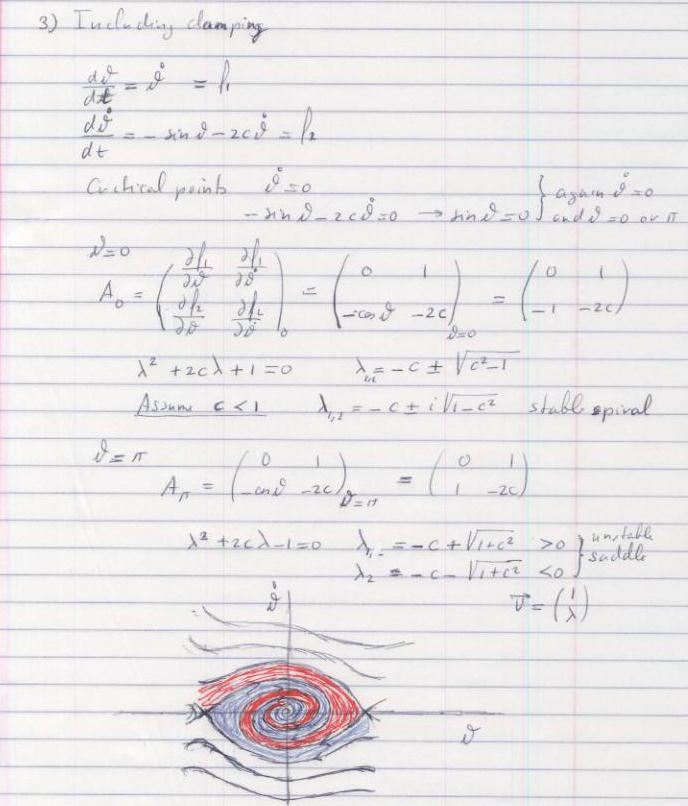 3) Including damping
dϑ/dt = ϑ̇ = f₁
dϑ̇/dt = - sin ϑ - 2cϑ̇ = f₂
Critical points ϑ̇ = 0 } again ϑ̇ = 0
- sin ϑ - 2cϑ̇ = 0 → sin ϑ = 0 } and ϑ = 0 or π
ϑ = 0
A₀ = ( ∂f₁/∂ϑ ∂f₁/∂ϑ̇ ; ∂f₂/∂ϑ ∂f₂/∂ϑ̇ )₀ = ( 0 1 ; -cos ϑ -2c )ϑ=0 = ( 0 1 ; -1 -2c )
λ² + 2cλ + 1 = 0 λ₁,₂ = -c ± √(c²-1)
Assume c < 1 λ₁,₂ = -c ± i√(1-c²) stable spiral
ϑ = π
Aπ = ( 0 1 ; -cos ϑ -2c )ϑ=π = ( 0 1 ; 1 -2c )
λ² + 2cλ - 1 = 0 λ₁ = -c + √(1+c²) > 0 } unstable
λ₂ = -c - √(1+c²) < 0 } saddle
v⃗ = ( 1 ; λ )
ϑ̇
ϑ